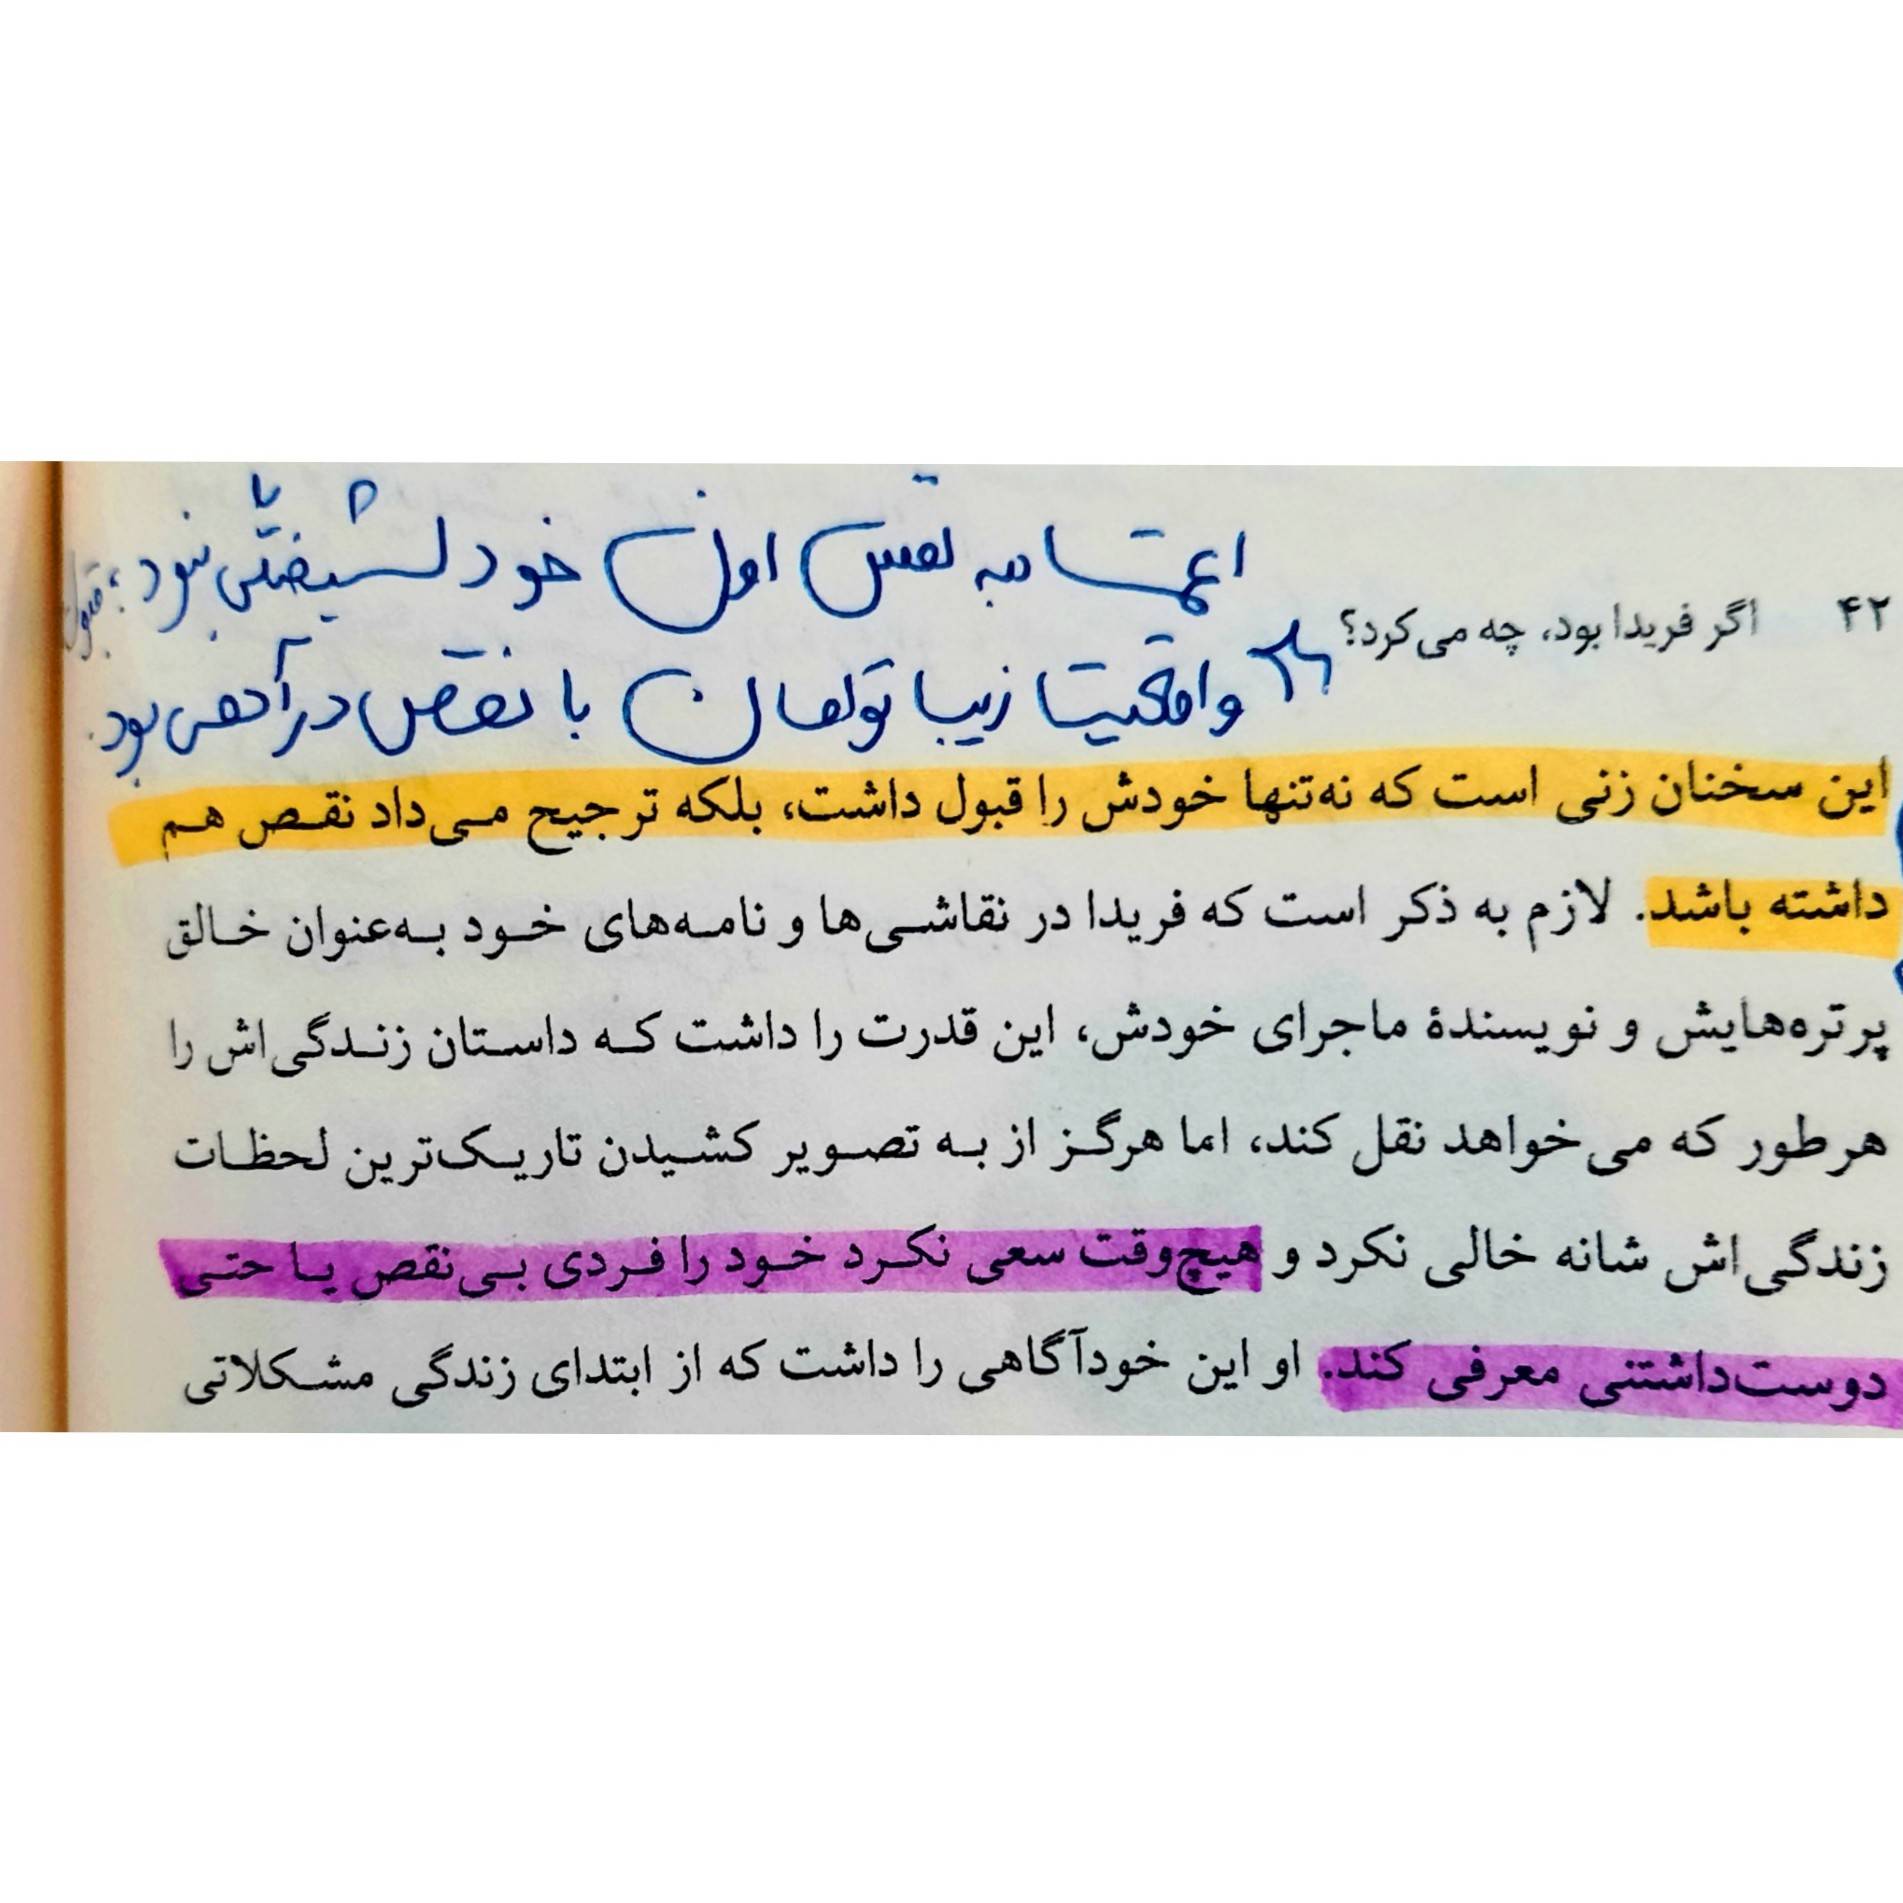 اعتماد به نفس اون خودشیفتگی نبود؛ قبول
۴۲ اگر فریدا بود، چه می‌کرد؟
واقعیتا زیبا توأمان با نقص در آدمی بود.
این سخنان زنی است که نه‌تنها خودش را قبول داشت، بلکه ترجیح می‌داد نقص هم
داشته باشد. لازم به ذکر است که فریدا در نقاشی‌ها و نامه‌های خود به‌عنوان خالق
پرتره‌هایش و نویسندهٔ ماجرای خودش، این قدرت را داشت که داستان زندگی‌اش را
هر طور که می‌خواهد نقل کند، اما هرگز از به تصویر کشیدن تاریک‌ترین لحظات
زندگی‌اش شانه خالی نکرد و هیچ‌وقت سعی نکرد خود را فردی بی‌نقص یا حتی
دوست‌داشتنی معرفی کند. او این خودآگاهی را داشت که از ابتدای زندگی مشکلاتی